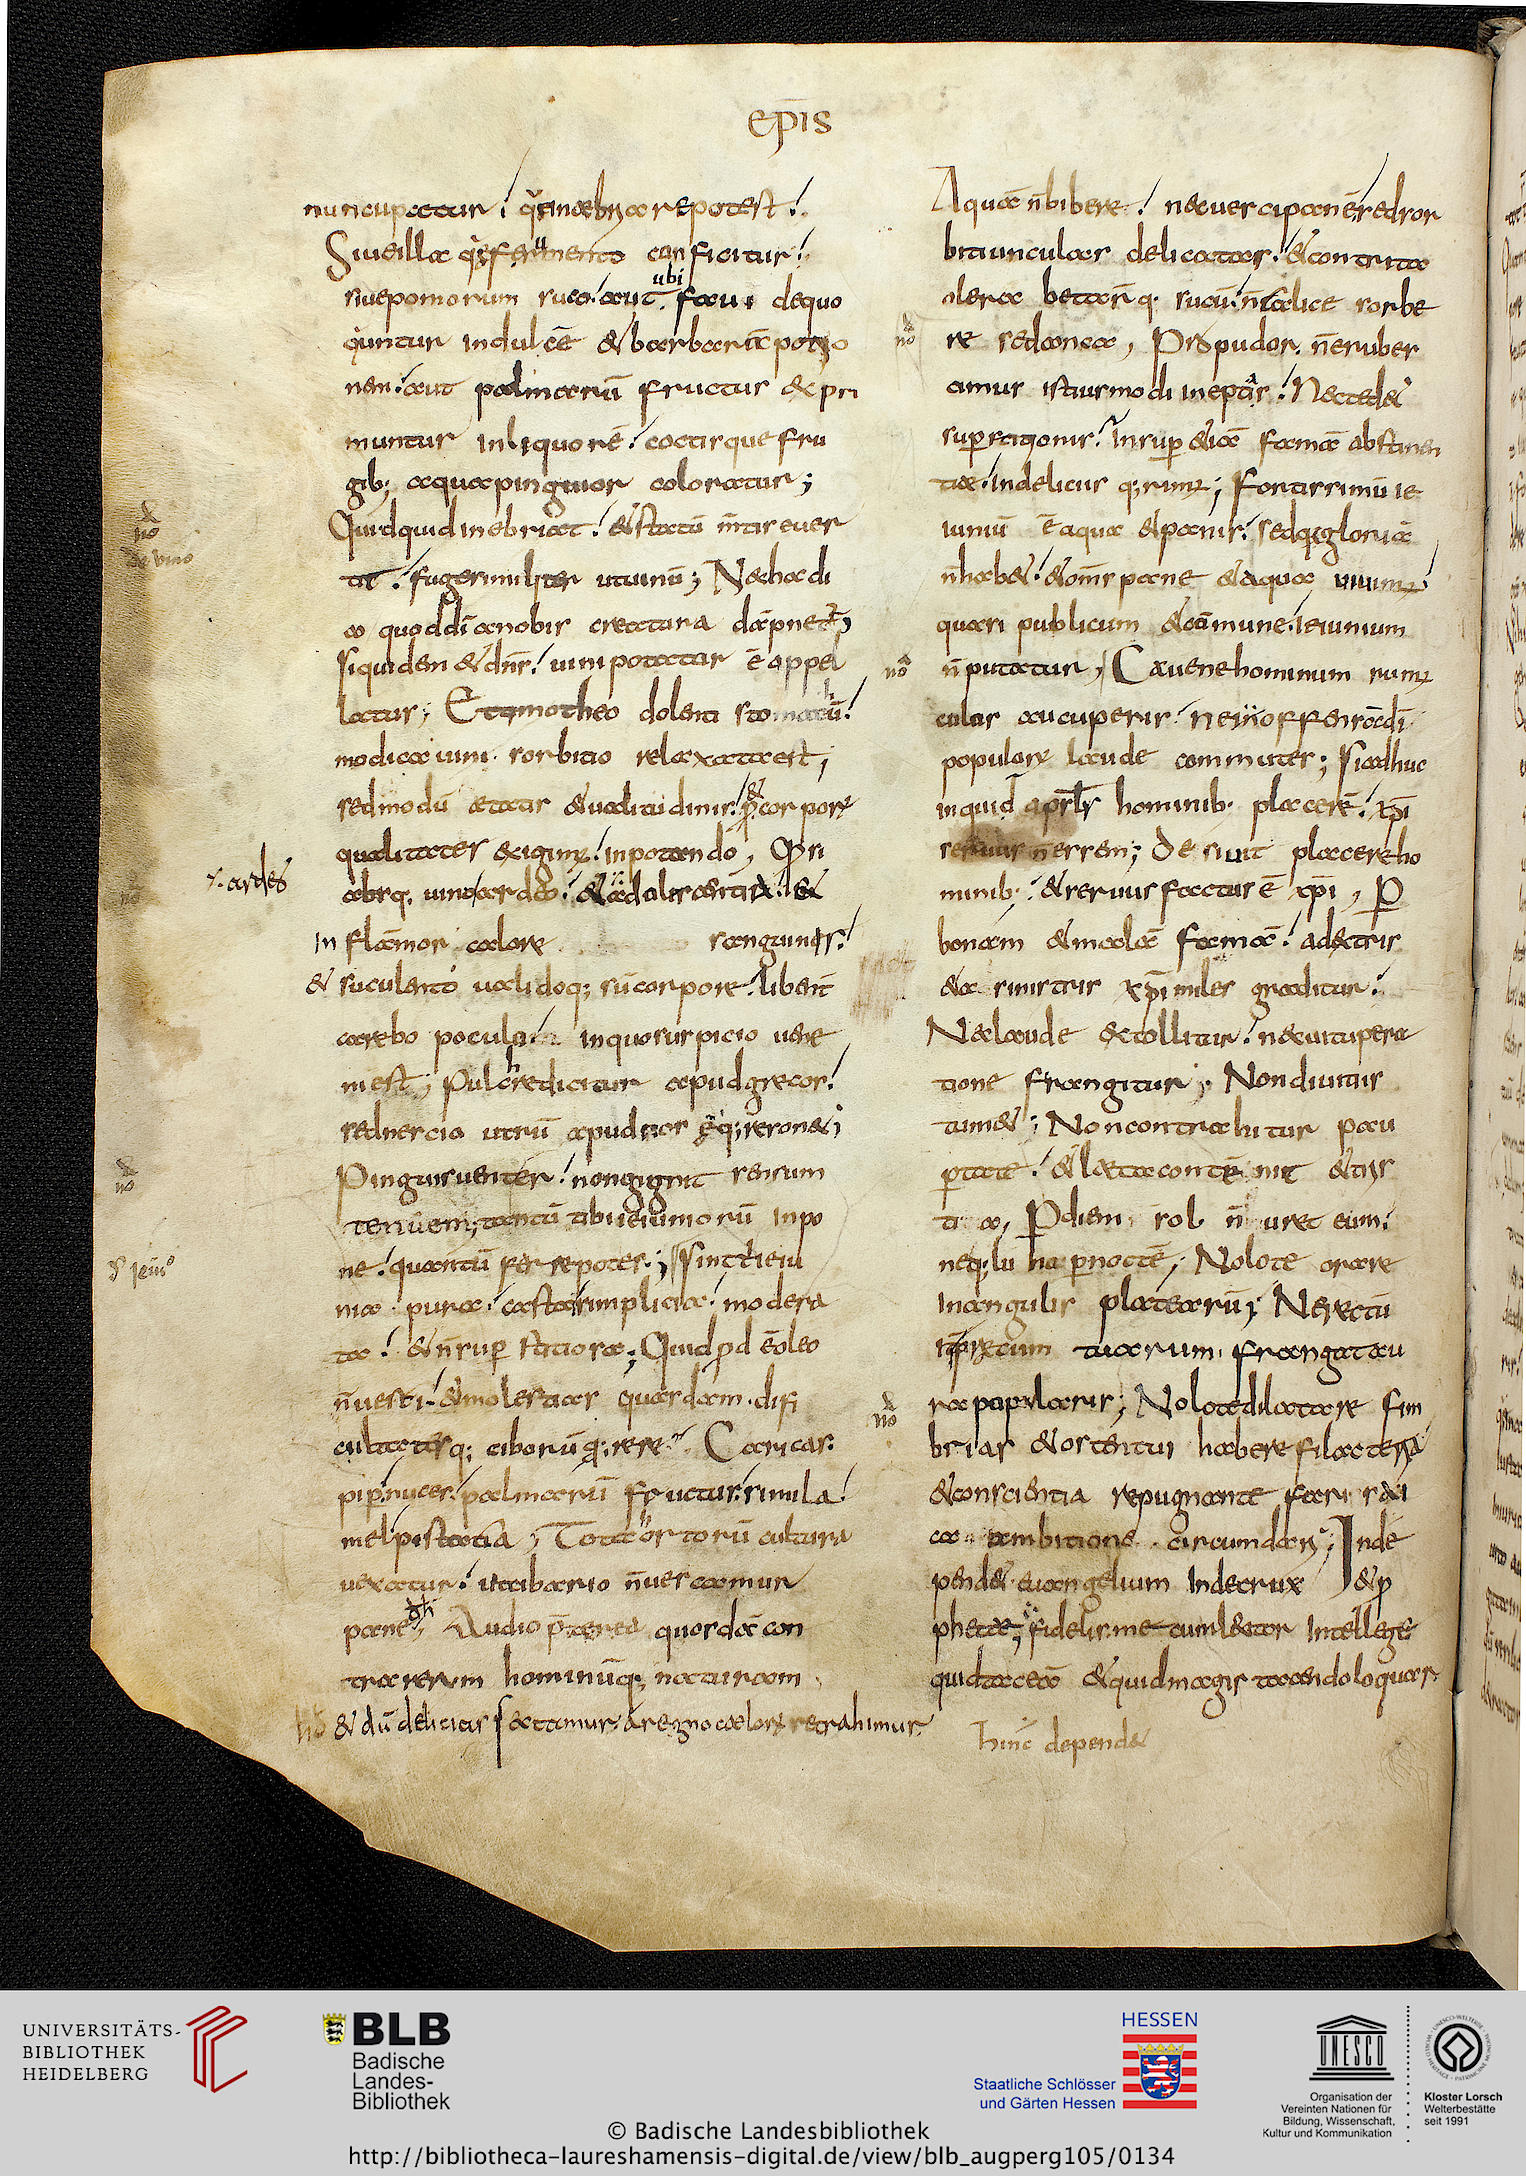 epis
nuncupatur; q̄ sinebriare potest;
Siue illa q̄ fermento conficitur;
siue pomorum suco; aut ubi faui dequo
quntur indulcē & barbarā potio
nem; aut palmarū fructus & pri
muntur inliquorē; coctisque fru
gib; aqua pinguior coloratur;
Quidquid inebriat; & statū mtis euer
tit; fuge similiter ut uinū; Nec hoc di
co quod dī a nobis creatura dāpnet;
siquidem & dn̄s; uini potatur ē appel
latus; Et timotheo dolenti stomachū;
modica uini sorbitio relaxata est;
sed modū aetatis & ualitudinis; & p corpore
qualitates exigim; inpotando, Qd si
absq. uino ardeo; & adoliscentia; &
r. ardes
inflāmor calore sanguinis;
& suculento ualidoq; sū corpore; libent
carebo pocula; in quo suspicio uene
ni est; Pulchre dicitur apud grecos;
sed nescio utrū apud nos eq; resonet;
Pinguis uenter; non gignit sensum
tenuem; tantū tibi ieiuniorū inpo
ne; quantū ferre potes; Sint t ieiu
nia pura; casta; simplicia; modera
ta; & n̄ sup stitiosa; Quid pd ē oleo
n̄ uesci; & molestias quasdam difi
cultatesq; ciborū q;rere; Caricas;
pip; nuces; palmarū fructus; simila
mel pistatia; Tota ortorū cultura
uexatur; ut a cibario n̄ uescamur
pane; Audio p̄terea quosdā con
tra rerum hominūq; naturam
& dū delicias sectamur; a regno caelor retrahimur;
Aquā n̄ bibere; nec uesci pane; sed sor
bitiunculas delicatas; & contrita
olera betarūq. sucū; n̄ calice sorbe
re sed conca, Pro pudor n̄ erubes
cimus istiusmodi ineptiis; Nec tedet
superstitionis; Insup & iā famā abstinen
tiae; in deliciis q;rim; Fortissimū ie
iuniū ē aqua & panis; sed q; gloriā
n̄ habet; & om̄s pane & aqua uiuim;
quasi publicum & cōmune; ieiunium
n̄ putatur, Caue ne hominum rum
culos aucuperis; ne in offensā dī
populor laude commutes; Si adhuc
inquid apostls hominib. placerē; xpi
seruus n̄ essem; Desiuit placere ho
minib; & seruus factus ē xpi, P
bonam & malā famā; a dextris
& a sinistris xpi miles graditur;
Nec laude extollitur; nec uitupera
tione frangitur; Non diuitiis
tumet; Non contrahitur pau
ptate; & laeta contēnit & tris
ti a, P diem sol n̄ uret eum;
neq; luna p noctē; Nolo te orare
in angulis platearū; Ne rectū
iter p̄cum tuarum frangat au
ra papularis; Nolo te dilatare fim
brias & ostentui habere filacteria
& conscientia repugnante farisai
ca ambitione circumdari; Inde
pendet euangelium Inde crux & p
phetae; fidelis me cum lector Intellege
quid taceā & quid magis tacendo loquar
hinc depend&
UNIVERSITÄTS-
BIBLIOTHEK
HEIDELBERG
BLB
Badische
Landes-
Bibliothek
HESSEN
Staatliche Schlösser
und Gärten Hessen
UNESCO
Organisation der
Vereinten Nationen für
Bildung, Wissenschaft,
Kultur und Kommunikation
Kloster Lorsch
Welterbestätte
seit 1991
© Badische Landesbibliothek
http://bibliotheca-laureshamensis-digital.de/view/blb_augperg105/0134